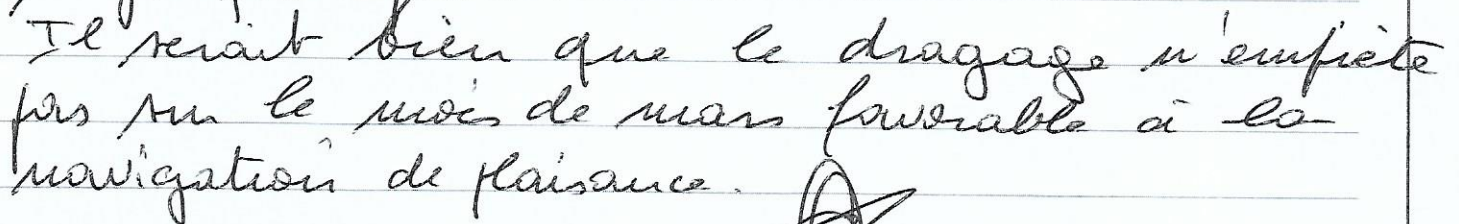 Il serait bien que le dragage n'empiète
pas sur le mois de mars favorable à la
navigation de plaisance.